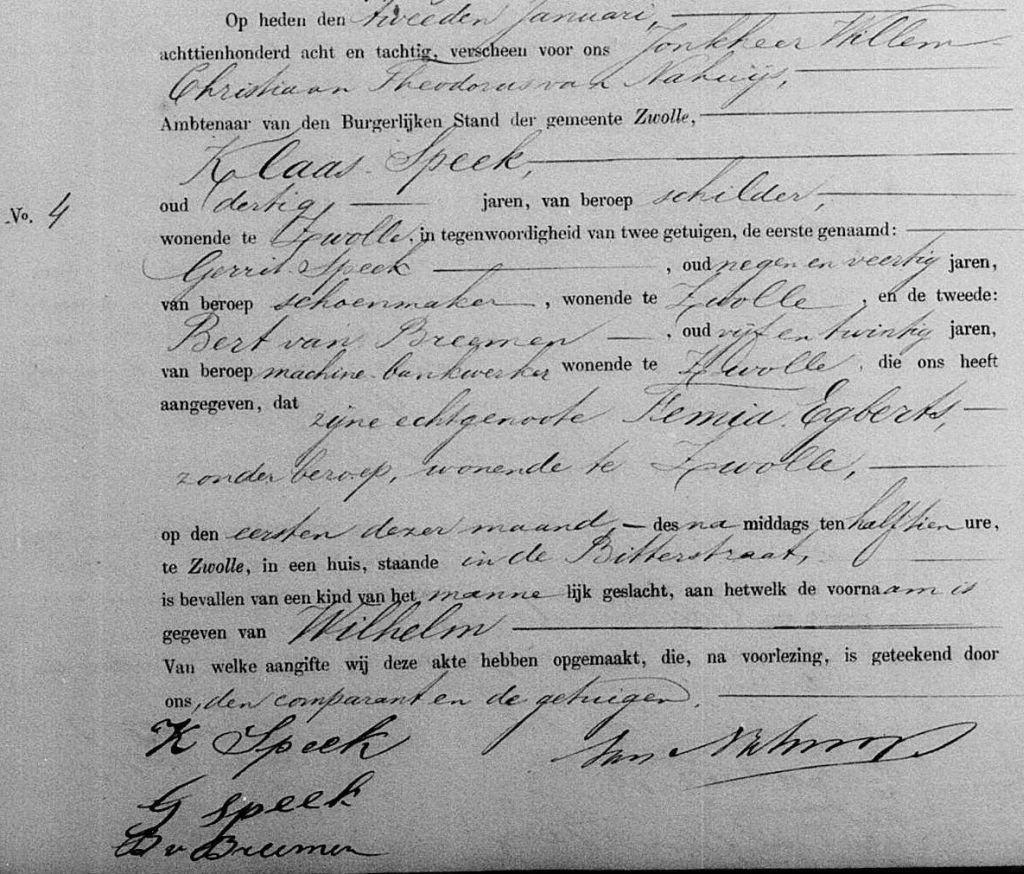 Op heden den tweeden Januari,
achttienhonderd acht en tachtig, verscheen voor ons Jonkheer Willem
Christiaan Theodorus van Nahuijs,
Ambtenaar van den Burgerlijken Stand der gemeente Zwolle,
Klaas Speek,
No. 4
oud dertig jaren, van beroep schilder,
wonende te Zwolle, in tegenwoordigheid van twee getuigen, de eerste genaamd:
Gerrit Speek, oud negen en veertig jaren,
van beroep schoenmaker, wonende te Zwolle, en de tweede:
Bert van Breemen, oud vijf en twintig jaren,
van beroep machine-bankwerker wonende te Zwolle, die ons heeft
aangegeven, dat zijne echtgenoote Femia Egberts,
zonder beroep, wonende te Zwolle,
op den eersten dezer maand, des na middags ten half tien ure,
te Zwolle, in een huis, staande in de Bitterstraat,
is bevallen van een kind van het manne lijk geslacht, aan hetwelk de voornaam is
gegeven van Wilhelm
Van welke aangifte wij deze akte hebben opgemaakt, die, na voorlezing, is geteekend door
ons, den comparant en de getuigen.
K Speek
G Speek
B v Breemen